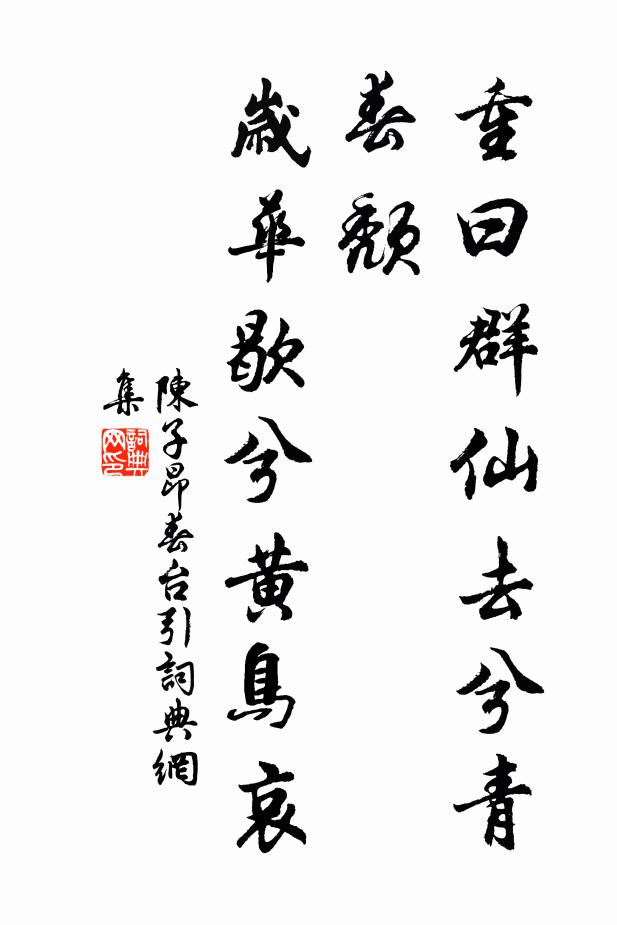 重曰群仙去兮青
春頹
歲華歇兮黃鳥哀
陳子昂春台引詞典網
集
詞典
网印